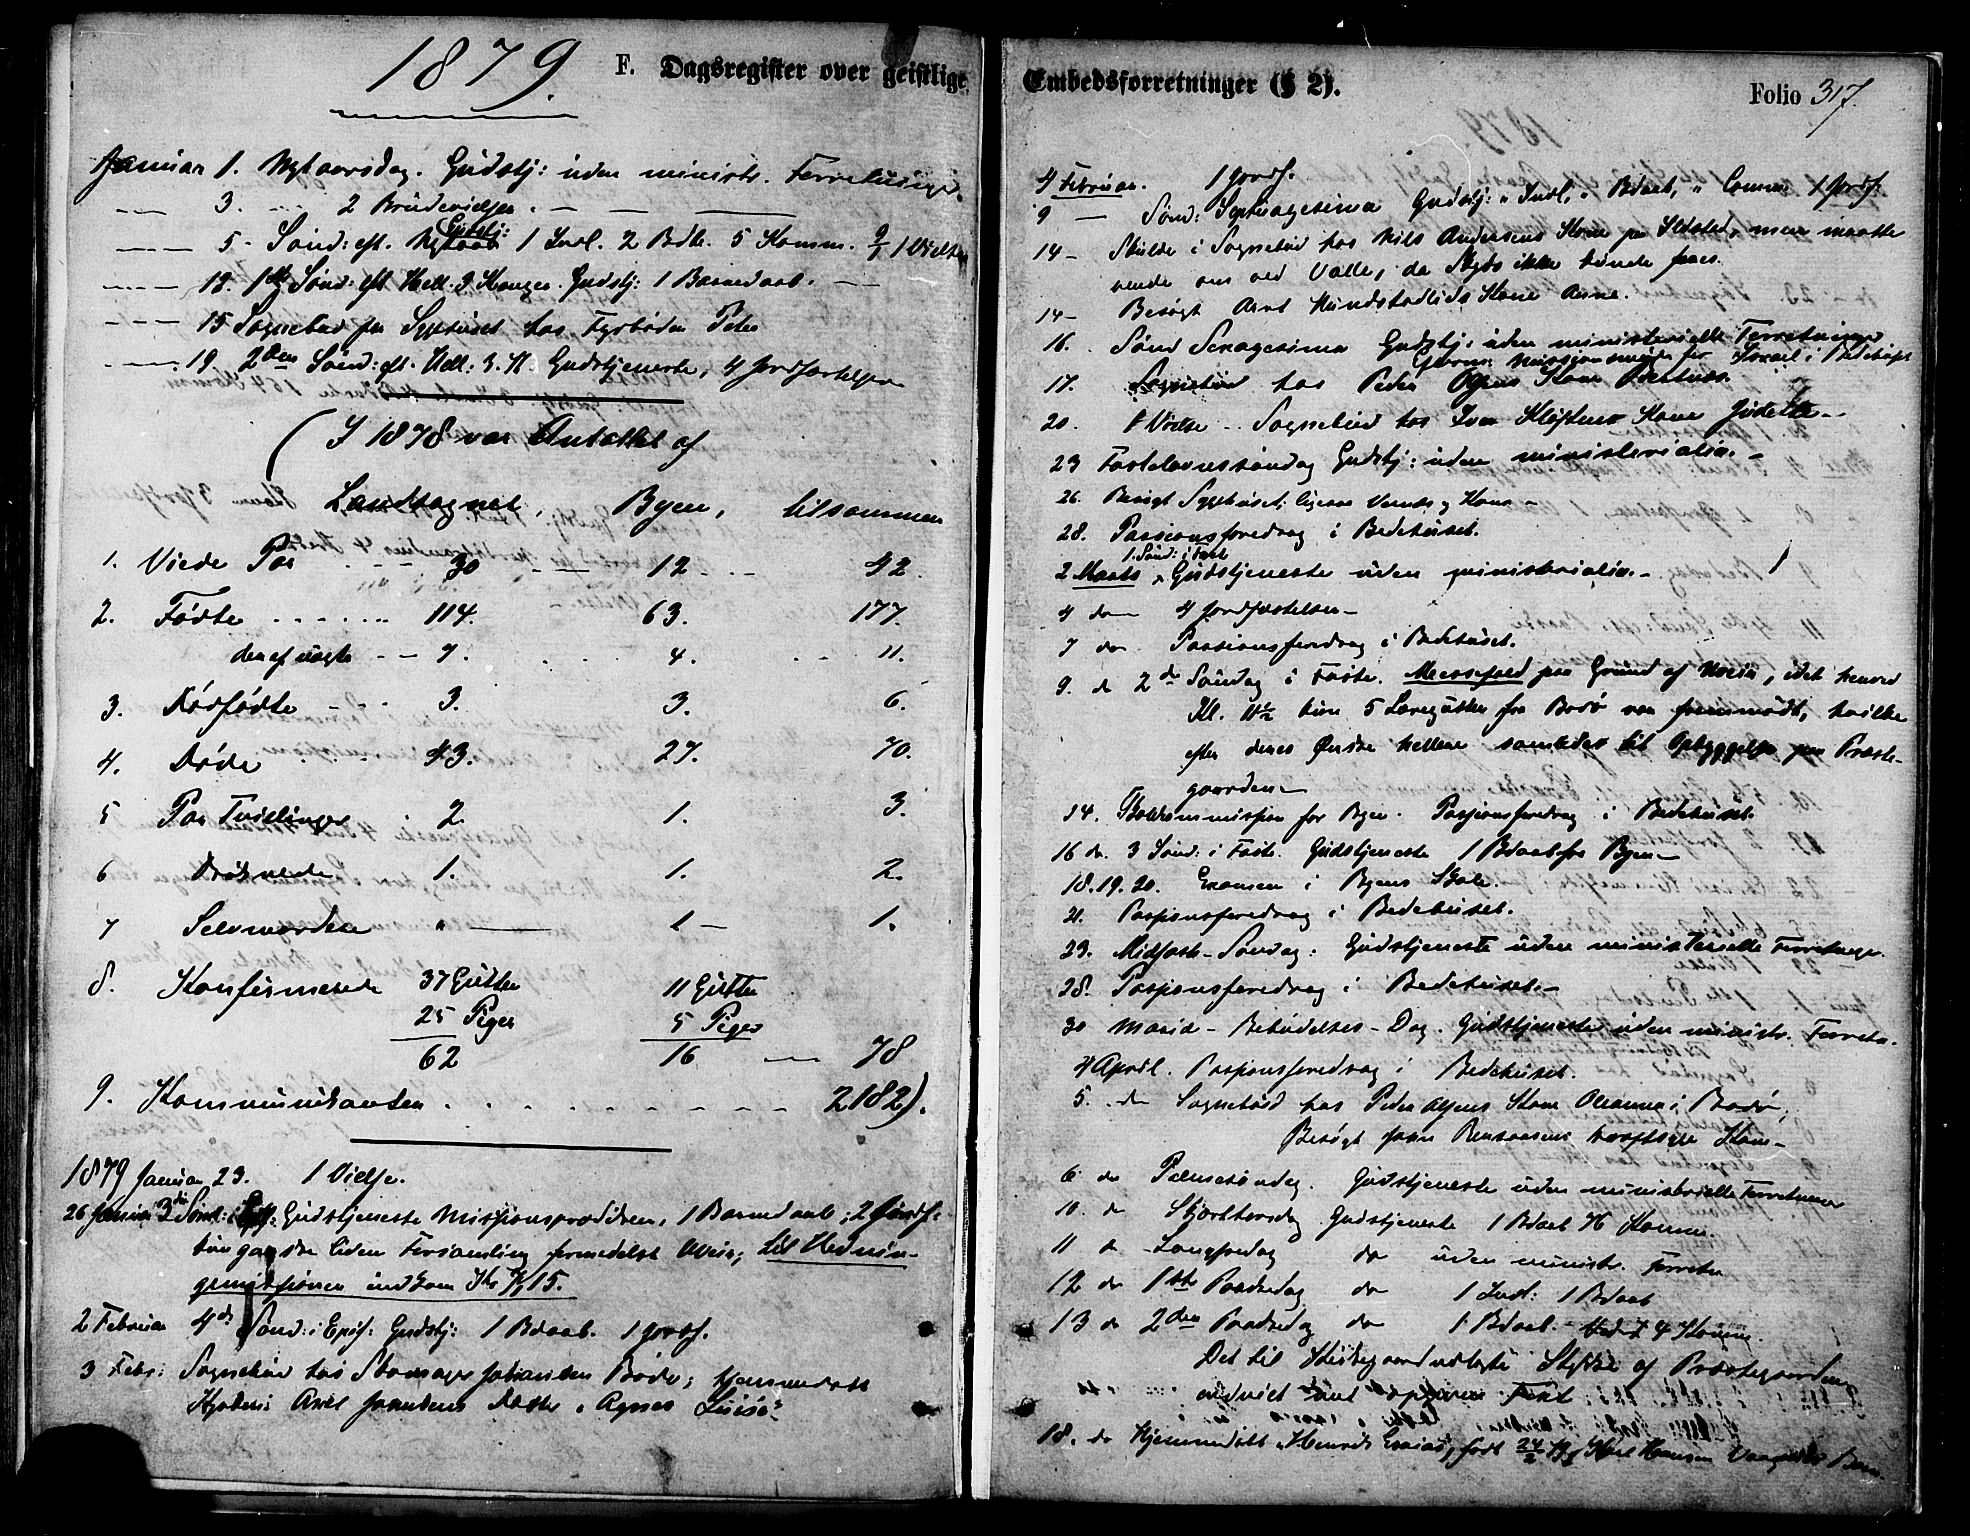 1879.
F. Dagsregister over geistlige
Januar 1. Nytaarsdag. Gudstj: uden ministr. Forretninger.
3. 2 Brudevielser.
Gudstj:
5. Sønd: eft. Nytaar 1 Intl. 2 Bdb. 5 Komm. 9/1 1 Vielse
12. 1ste Sønd: eft Hell. 3 Konger. Gudstj: 1 Barnedaab.
15 Sognebud paa Sygehuset hos Fyrbøder Peter
19. 2den Sønd: eft. Hell: 3. K. Gudstjeneste, 4 Jordfæstelser
(I 1878 var Antallet af
Landsognet, Byen, tilsammen
1. Viede Par 30 12 42.
2. Fødte 114. 63. 177.
deraf uægte 7. 4. 11.
3. Dødfødte 3. 3. 6.
4. Døde 43. 27. 70.
5 Par Tvillinger 2. 1. 3.
6 Druknede 1. 1. 2.
7 Selvmordere " 1 1.
8. Konfirmerede 37 Gutter 11 Gutter
25 Piger 5 Piger
62 16 78
9. Kommunikanter 2182).
1879 Januar 23. 1 Vielse.
26 Januar 3die Sønd: Gudstjeneste Missionsprædiken, 1 Barnedaab; 2 Jordf:
liden Forsamling formedelst Uveir; til Hedning-
gemissionen indkom Kr 7,15.
2 Februar 4de Sønd: i Epif: Gudstj: 1 Bdaab. 1 Jordf.
3 Febr: Sognebud hos Skomager Johansen Bodø; hjemmedøbt
Axel Datter, Agnes Luise
Embedsforretninger (§ 2).
Folio 317.
4 Februar. 1 Jordf.
9 — Sønd: Septuagesima Gudstj: " Intl, " Bdaab, " Comm. 1 Jordf.
14 — Skulde i Sognebud hos Nils Andersens Kone paa Seldstad, men maatte
vende om ved Valle, da Skyds ikke kunde faaes.
14 — Besøgt Arnt Hundstadlids Kone Anne.
16. Sønd Sexagesima Gudstj: uden ministerielle Forretninger
Missionsmøde for Israel i Bedehuset
17. Sognebud hos Peder Olsens Kone
20. 1 Vielse — Sognebud hos Iver Kløftens Kone
23 Fastelavnssøndag Gudstj: uden ministerialia.
26. Besøgt Sygehuset; Kone
28. Passionsforedrag i Bedehuset.
1. Sønd: i Faste
2 Marts, Gudstjeneste uden ministerialia.
4 do 4 Jordfæstelser
7 do Passionsforedrag i Bedehuset.
9. do 2de Søndag i Faste. Messefald paa Grund af Uveir, idet henved
Kl. 11½ kun 5 Læregutter fra Bodø var fremmødt, hvilke
efter deres Ønske hellere samledes til Opbyggelse paa Præste-
gaarden
14. Skolekommission for Byen. Passionsforedrag i Bedehuset.
16 do. 3 Sønd: i Faste. Gudstjeneste 1 Bdaab for Byen
18. 19. 20. Examen i Byens Skole.
21. Passionsforedrag i Bedehuset.
23. Midfaste-Søndag: Gudstjeneste uden ministerielle Forretninger.
28. Passionsforedrag i Bedehuset.
30 Maria-Bebudelses-Dag. Gudstjeneste uden ministr. Forretn.
4 April. Passionsforedrag i Bedehuset.
5. do Sognebud hos Peder Olsens Kone Oleanna i Bodø.
Besøgt Kone
6. do Palmesøndag. Gudstjeneste uden ministerielle Forretninger
10. do Skjærthorsdag Gudstjeneste 1 Bdaab Komm.
11 do Langfredag do uden ministr. Forretn
12 do 1ste Paaskedag do 1 Intl: 1 Bdaab
13 do 2den Paaskedag do 1 Bdaab. 4 Komm.
Det til udlagte Stykke af Præstegaarden
indviet
18. do Hjemmedøbt Henrik Esaias, født 24/2 79 Karl Hansen Barn.